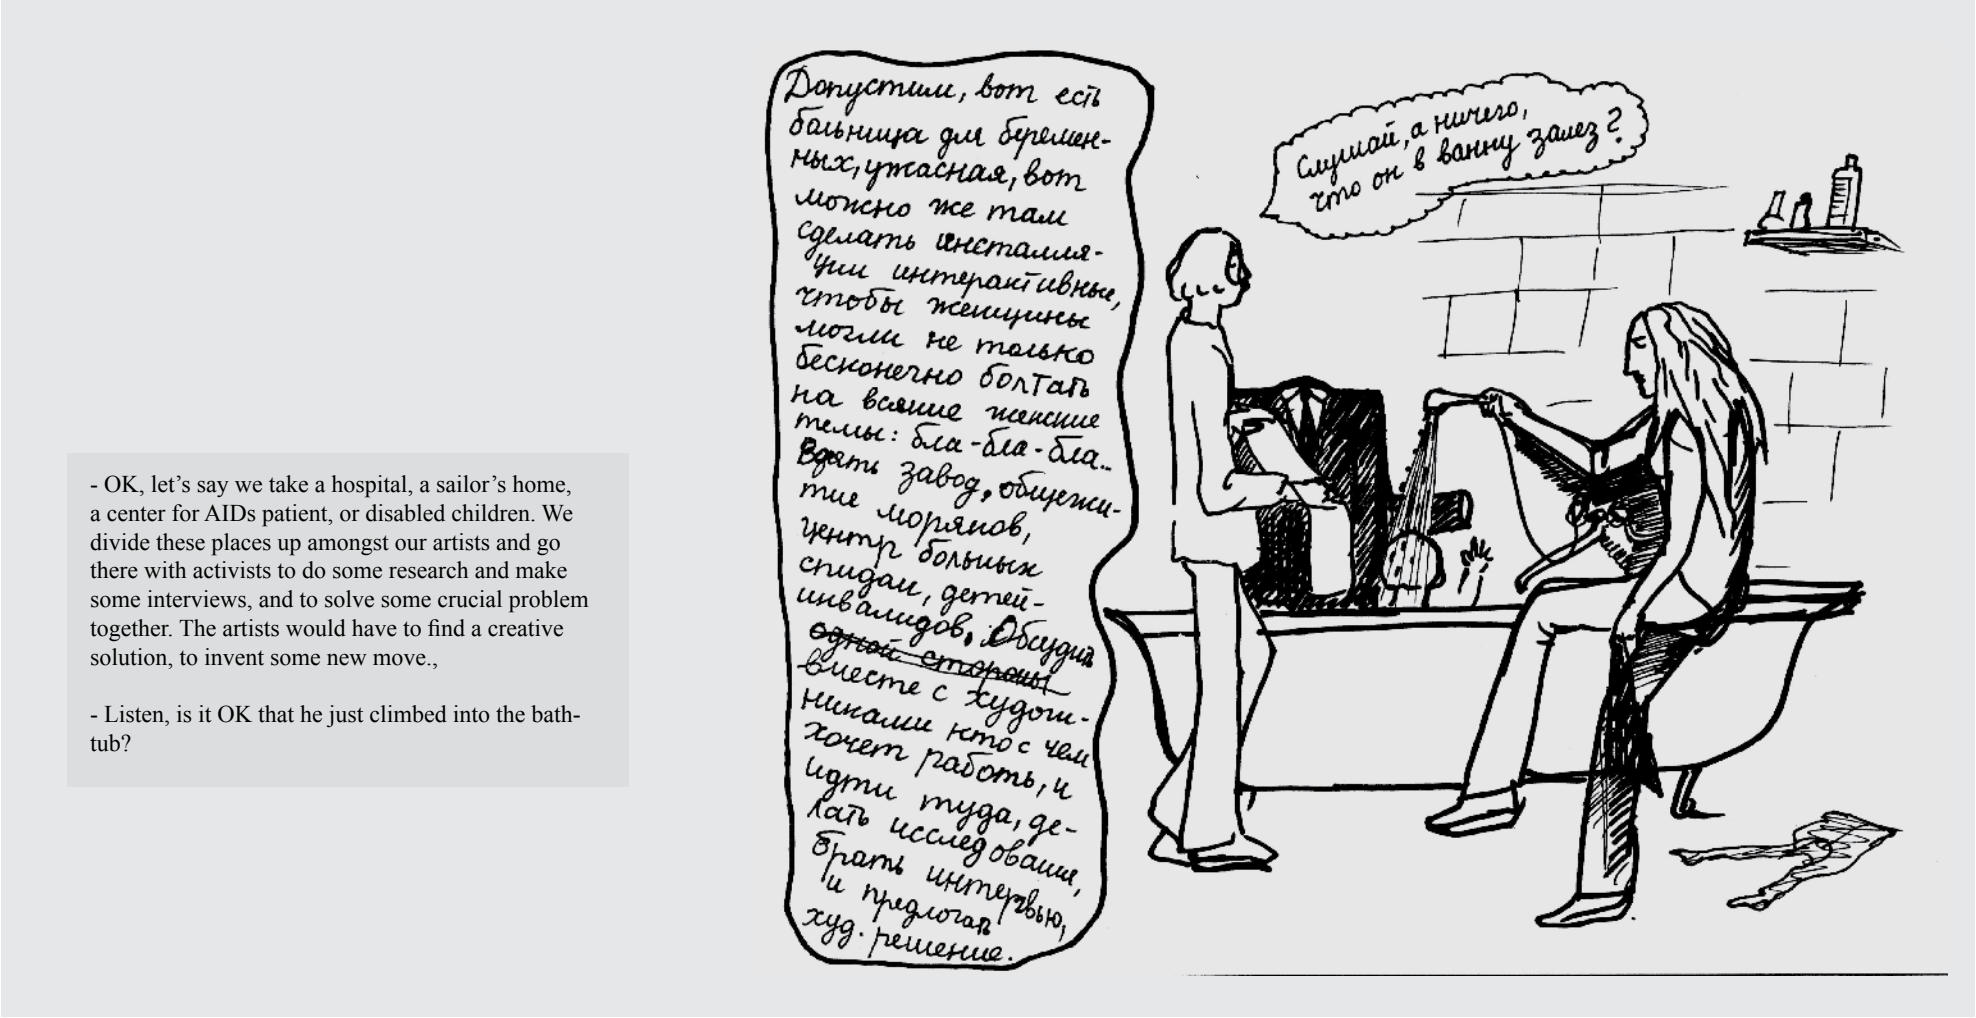 - OK, let’s say we take a hospital, a sailor’s home,
a center for AIDs patient, or disabled children. We
divide these places up amongst our artists and go
there with activists to do some research and make
some interviews, and to solve some crucial problem
together. The artists would have to find a creative
solution, to invent some new move.,
- Listen, is it OK that he just climbed into the bath-
tub?
Допустим, вот есть
больница для беремен-
ных, ужасная, вот
можно же там
сделать инсталля-
ции интерактивные,
чтобы женщины
могли не только
бесконечно болтать
на всякие женские
темы: бла-бла-бла..
Взять завод, общежи-
тие моряков,
центр больных
спидом, детей-
инвалидов. Обсудить
одной стороны
вместе с худож-
никами кто с чем
хочет работь, и
идти туда, де-
лать исследование,
брать интервью,
и предлогать
худ. решение.
Слушай, а ничего,
что он в ванну залез?